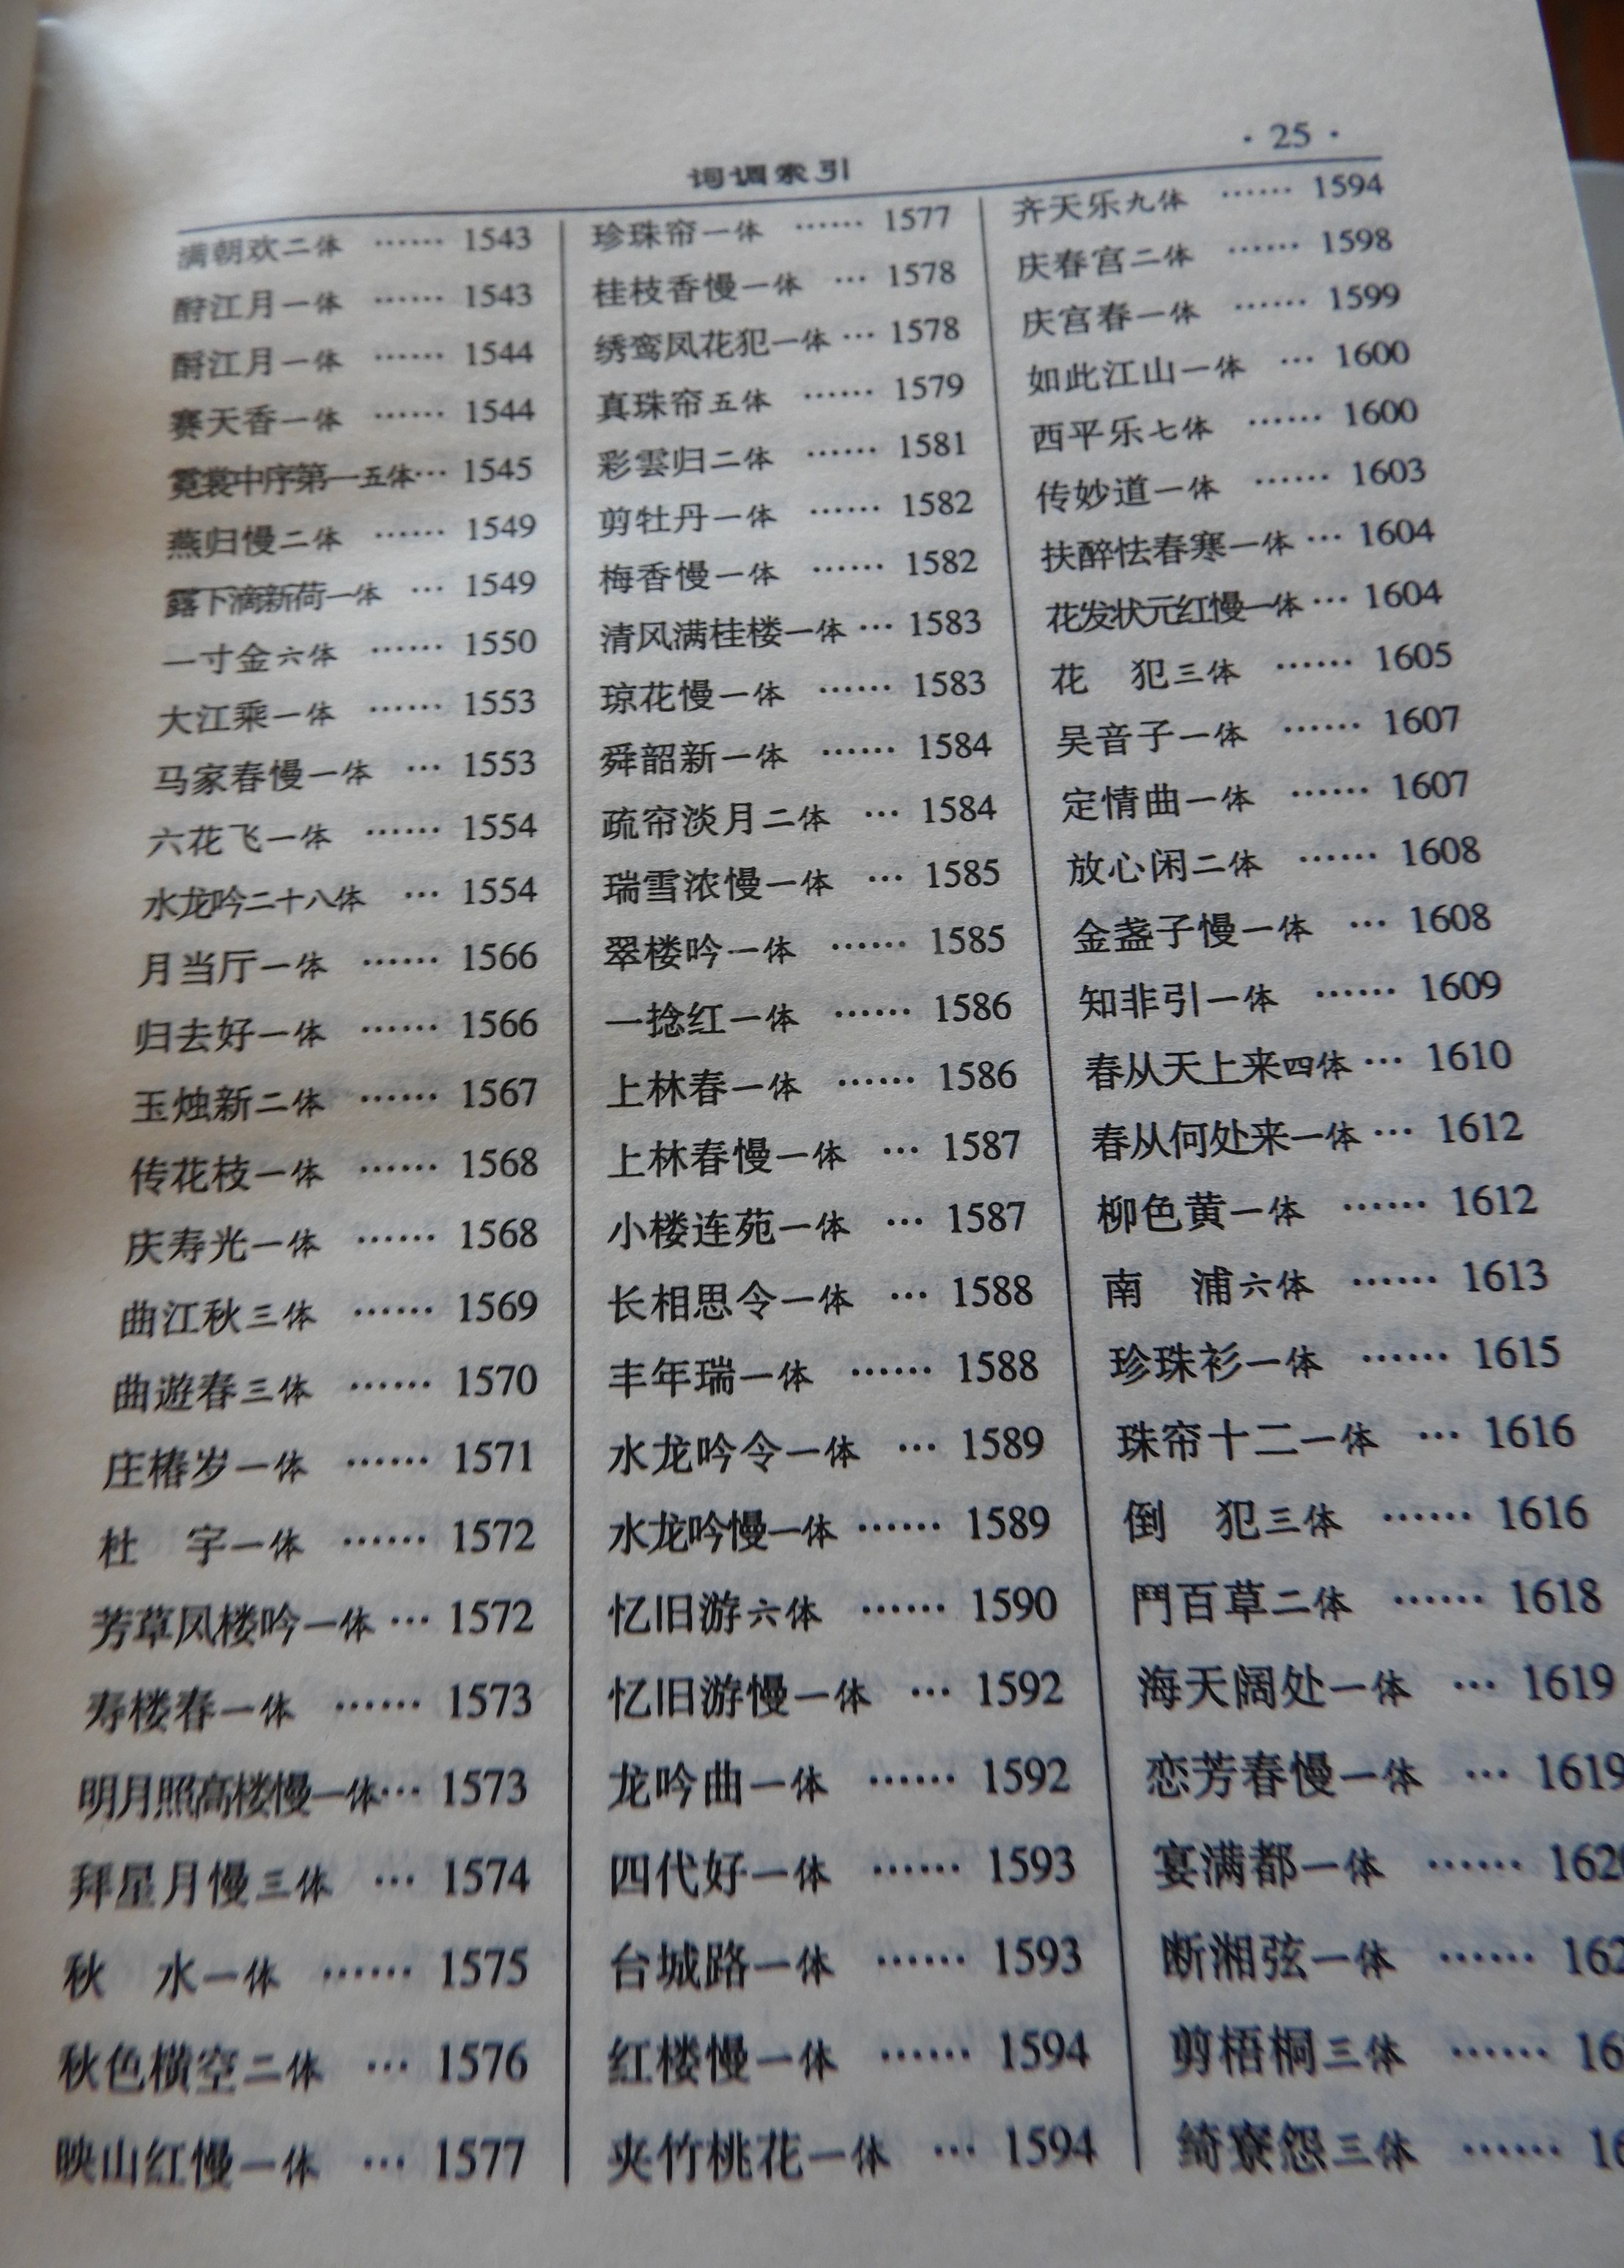 · 25 ·
词调索引
满朝欢二体 …… 1543
酹江月一体 …… 1543
酹江月一体 …… 1544
赛天香一体 …… 1544
霓裳中序第一五体… 1545
燕归慢二体 …… 1549
露下滴新荷一体 … 1549
一寸金六体 …… 1550
大江乘一体 …… 1553
马家春慢一体 … 1553
六花飞一体 …… 1554
水龙吟二十八体 … 1554
月当厅一体 …… 1566
归去好一体 …… 1566
玉烛新二体 …… 1567
传花枝一体 …… 1568
庆寿光一体 …… 1568
曲江秋三体 …… 1569
曲遊春三体 …… 1570
庄椿岁一体 …… 1571
杜　宇一体 …… 1572
芳草凤楼吟一体 … 1572
寿楼春一体 …… 1573
明月照高楼慢一体… 1573
拜星月慢三体 … 1574
秋　水一体 …… 1575
秋色横空二体 … 1576
映山红慢一体 … 1577
珍珠帘一体 …… 1577
桂枝香慢一体 … 1578
绣鸾凤花犯一体 … 1578
真珠帘五体 …… 1579
彩雲归二体 …… 1581
剪牡丹一体 …… 1582
梅香慢一体 …… 1582
清风满桂楼一体 … 1583
琼花慢一体 …… 1583
舜韶新一体 …… 1584
疏帘淡月二体 … 1584
瑞雪浓慢一体 … 1585
翠楼吟一体 …… 1585
一捻红一体 …… 1586
上林春一体 …… 1586
上林春慢一体 … 1587
小楼连苑一体 … 1587
长相思令一体 … 1588
丰年瑞一体 …… 1588
水龙吟令一体 … 1589
水龙吟慢一体 …… 1589
忆旧游六体 …… 1590
忆旧游慢一体 … 1592
龙吟曲一体 …… 1592
四代好一体 …… 1593
台城路一体 …… 1593
红楼慢一体 …… 1594
夹竹桃花一体 … 1594
齐天乐九体 …… 1594
庆春宫二体 …… 1598
庆宫春一体 …… 1599
如此江山一体 … 1600
西平乐七体 …… 1600
传妙道一体 …… 1603
扶醉怯春寒一体 … 1604
花发状元红慢一体 … 1604
花　犯三体 …… 1605
吴音子一体 …… 1607
定情曲一体 …… 1607
放心闲二体 …… 1608
金盏子慢一体 … 1608
知非引一体 …… 1609
春从天上来四体 … 1610
春从何处来一体 … 1612
柳色黄一体 …… 1612
南　浦六体 …… 1613
珍珠衫一体 …… 1615
珠帘十二一体 … 1616
倒　犯三体 …… 1616
鬥百草二体 …… 1618
海天阔处一体 … 1619
恋芳春慢一体 … 1619
宴满都一体 …… 162
断湘弦一体 …… 162
剪梧桐三体 …… 16
绮寮怨三体 …… 16